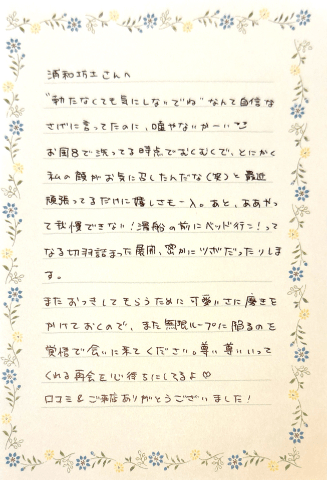 浦和坊主さんへ
"勃たなくても気にしないでね"なんて自信な
さげに言ってたのに、嘘やないかーい
お風呂で洗ってる時点でむくむくで、とにかく
私の顔がお気に召したんだな(笑)と最近
頑張ってるだけに嬉しさも一入。あと、ああやっ
て我慢できない!湯船の前にベッド行こ!って
なる切羽詰まった展開、密かにツボだったりしま
す。
またおっきしてもらうために可愛いさに磨きを
かけておくので、また無限ループに陥るのを
覚悟で会いに来てください。尊い尊いいって
くれる再会を心待ちにしてるよ♡
口コミ&ご来店ありがとうございました!